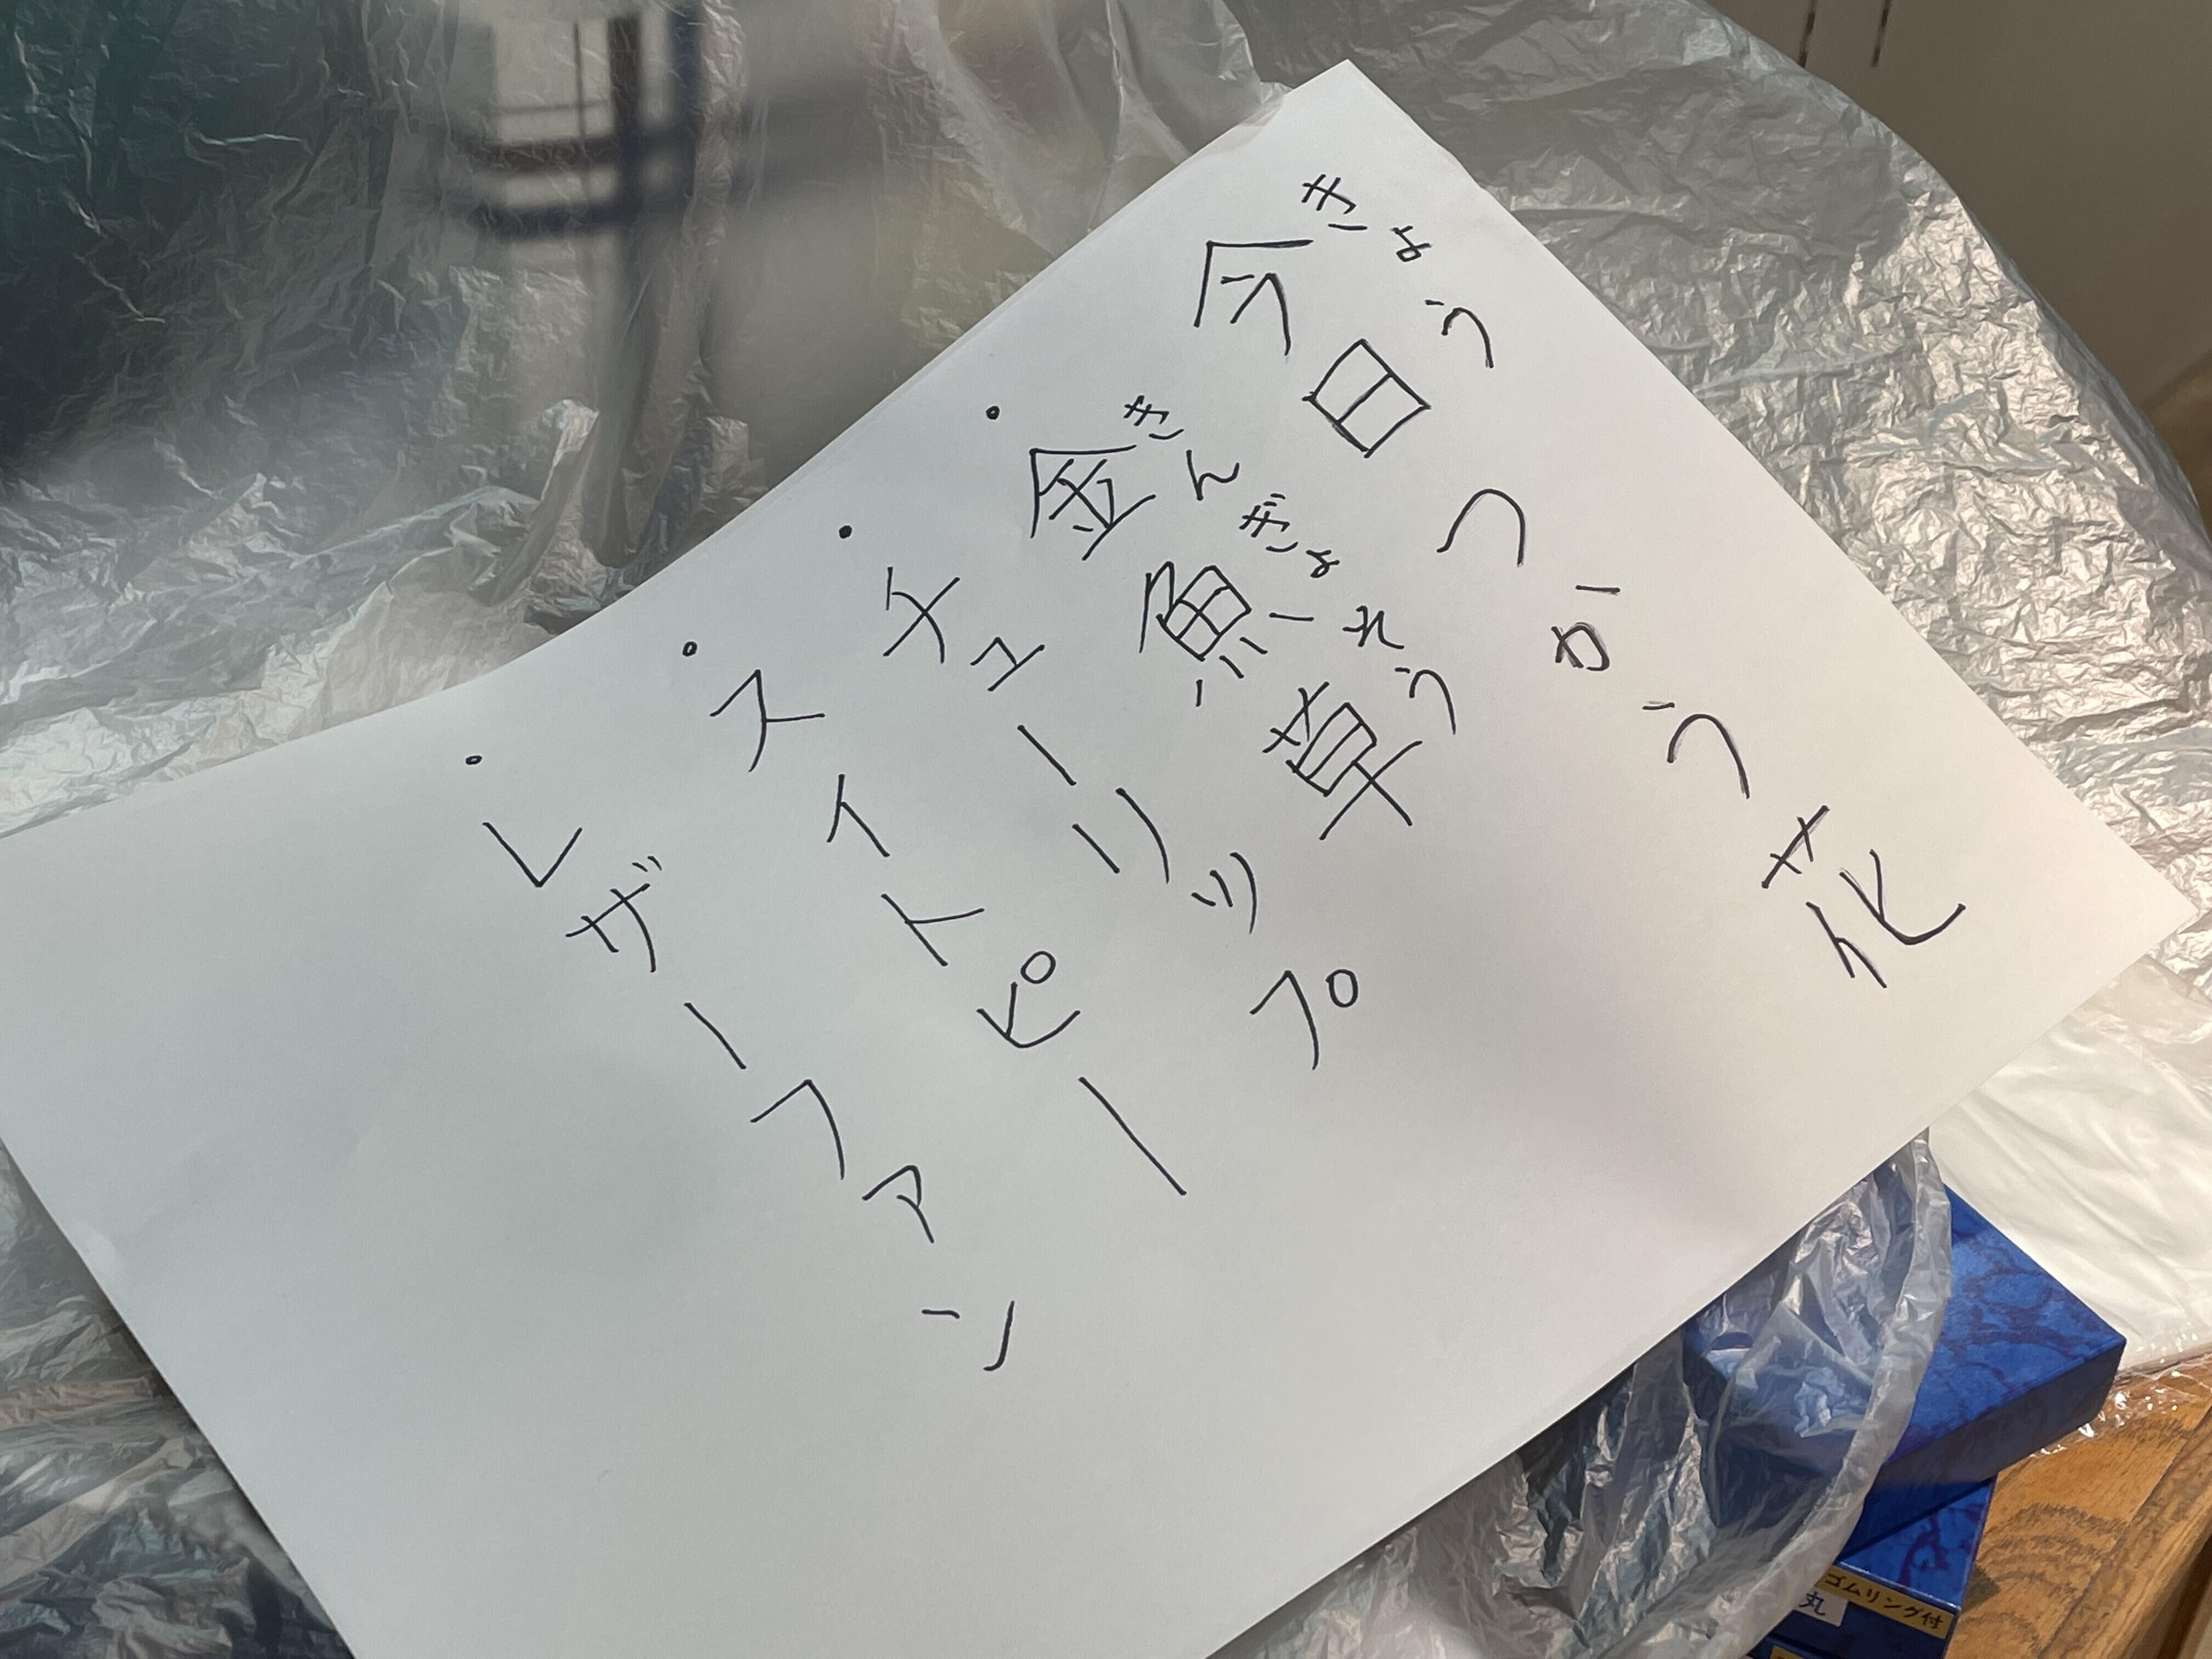 きょう
今日つかう花
きんぎょそう
・金魚草
・チューリップ
・スイトピー
・レザーファン
ゴムリング付
丸